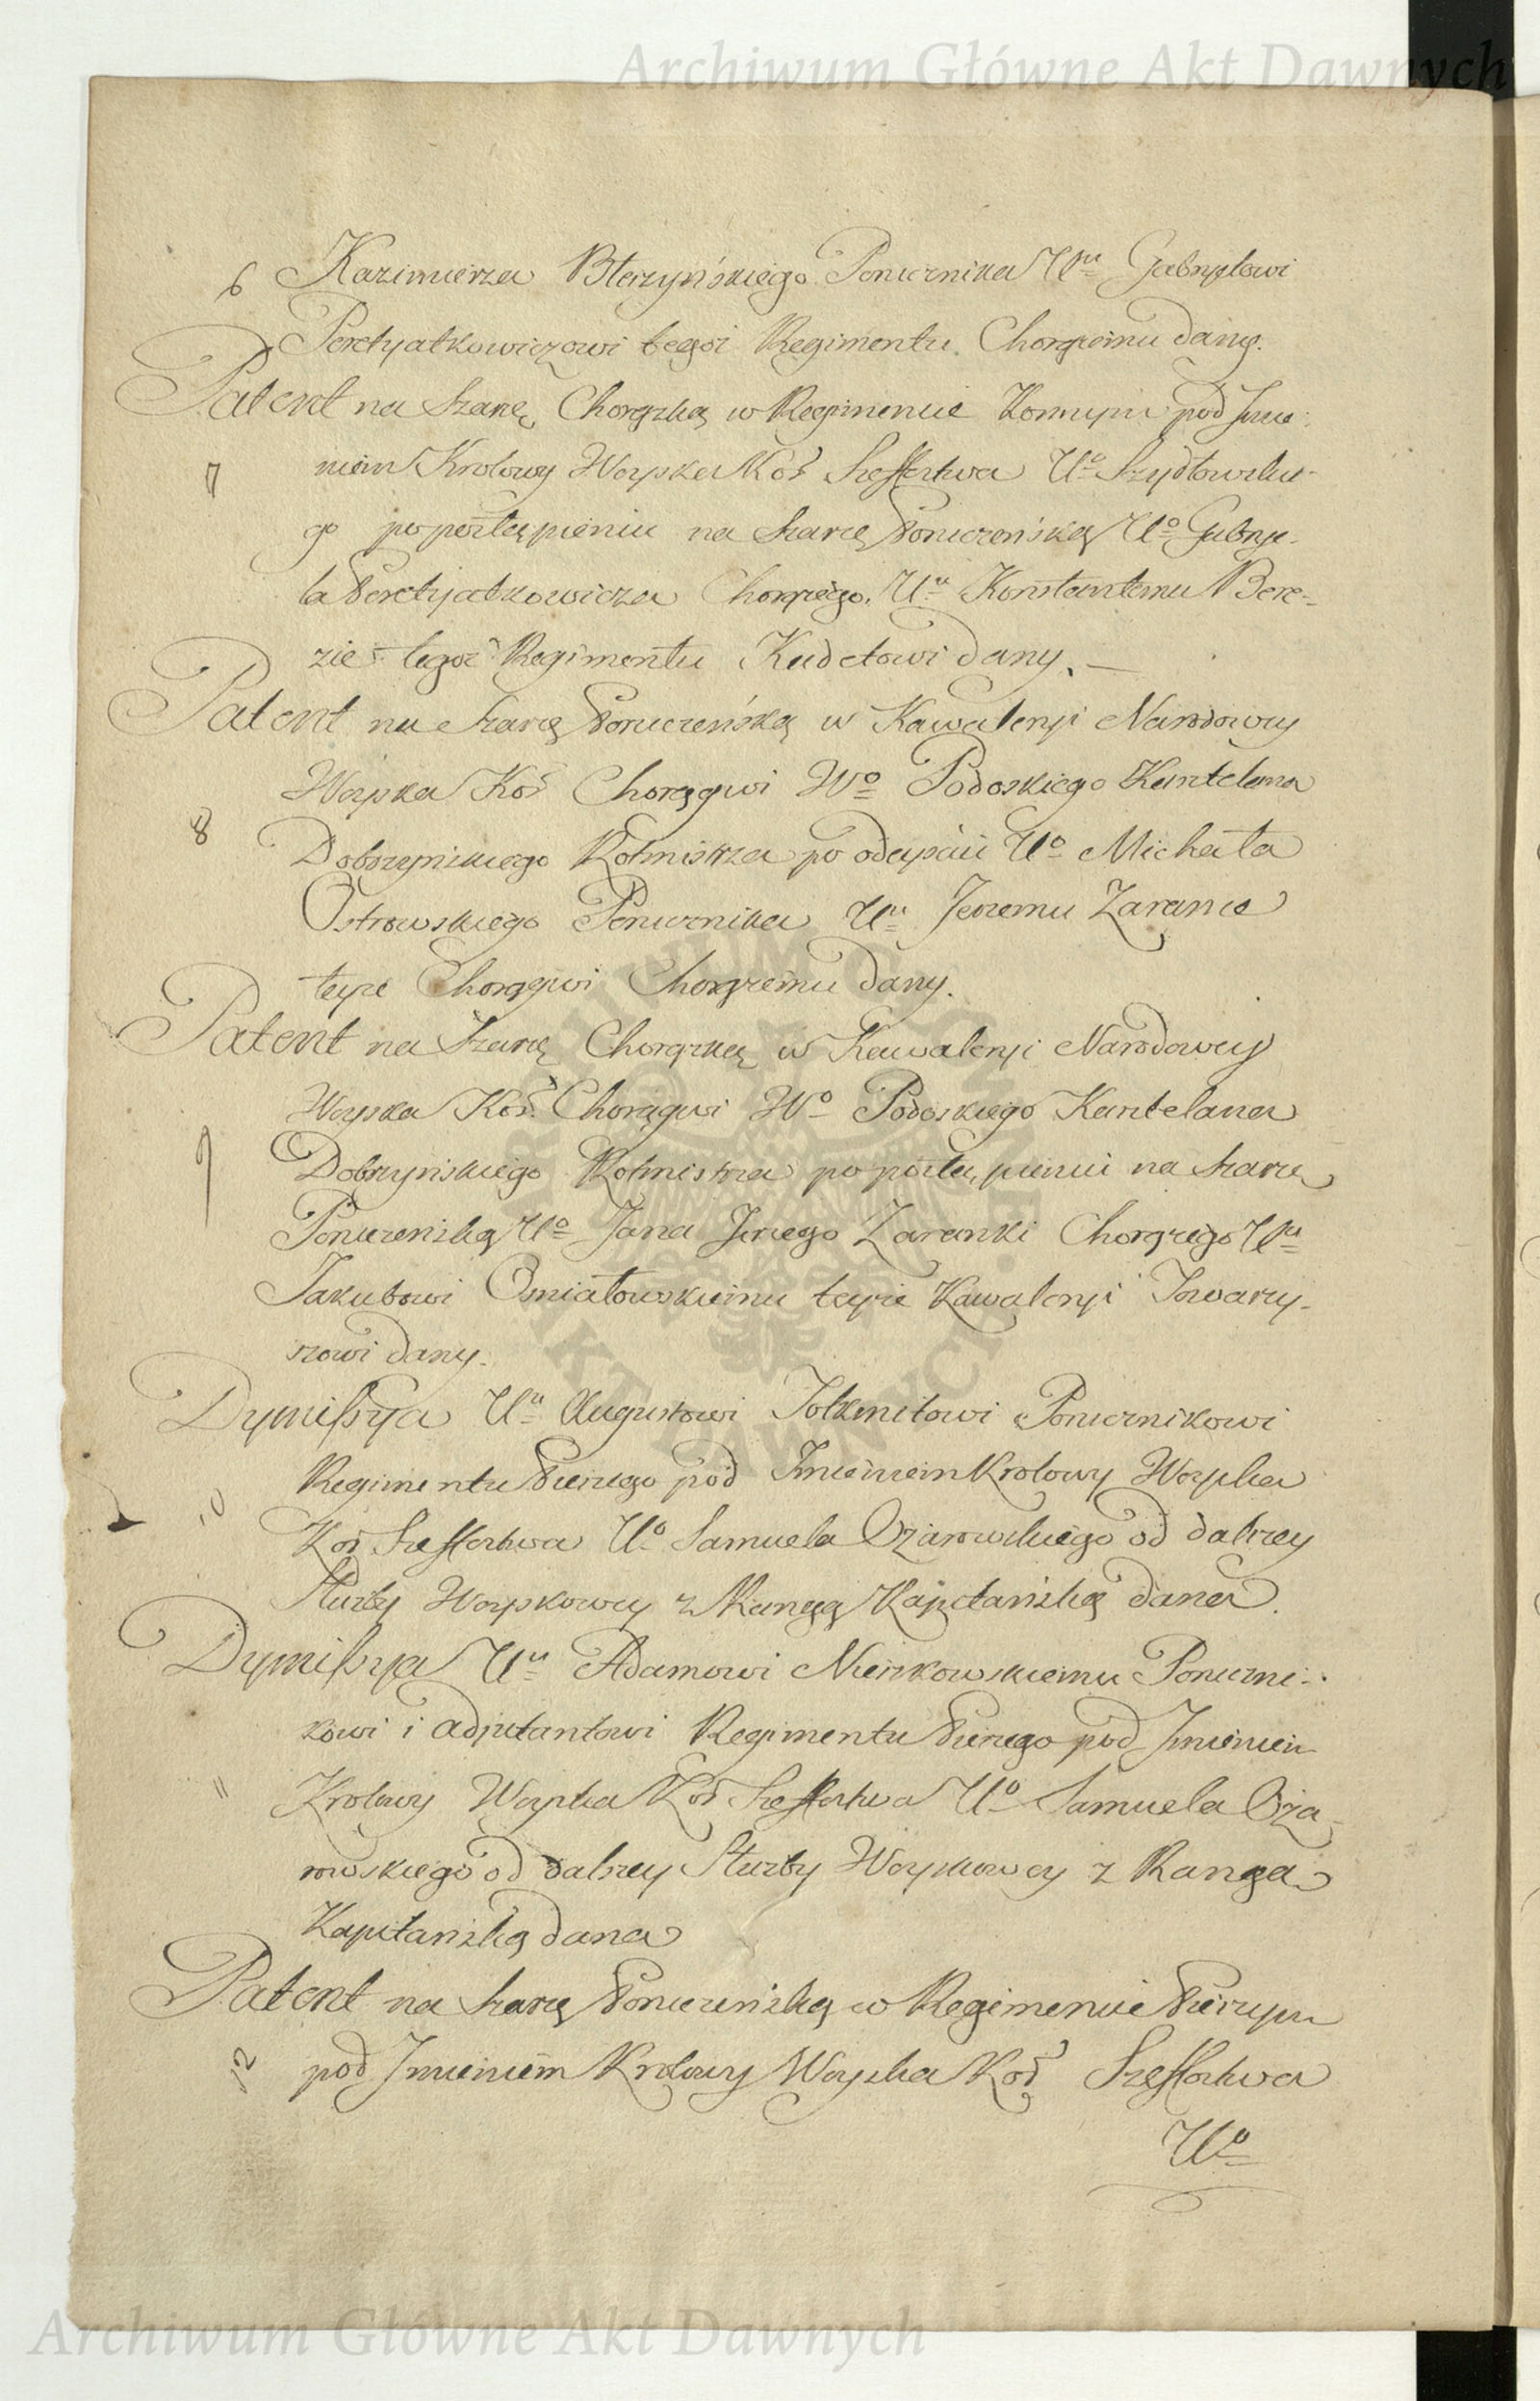 Archiwum Główne Akt Dawnych
6 Kazimierza Błeszyńskiego Porucznika Ur Gabryelowi
Peretyatkowiczowi tegoż Regimentu Chorążemu dany.
Patent na Szarżę Chorążską w Regimencie Konnym pod Imie-
7 niem Krolowy Woyska Koo Szeffostwa Uo Szydłowskie-
go po postąpieniu na Szarżę Poruczeńską Uo Gabrye-
la Peretyatkowicza Chorążego. Uu Konstantemu Bere-
zie tegoż Regimentu Kadetowi dany. —
Patent na Szarżę Poruczeńską w Kawaleryi Narodowey
Woyska Koo Chorągwi Wo Podoskiego Kasztelana
8 Dobrzynskiego Rotmistrza po odeyściu Uo Michała
Ostrowskiego Porucznika Uu Jerzemu Zarance
teyże Chorągwi Chorążemu dany.
Patent na Szarżę Chorążską w Kawaleryi Narodowey
Woyska Koo Chorągwi Wo Podoskiego Kasztelana
9 Dobrzyńskiego Rotmistrza po postąpieniu na Szarżę
Poruczeńską Uo Jana Jerzego Zaranki Chorążego Uu
Jakubowi Omiałowskiemu teyże Kawaleryi Towarzy-
szowi dany.
Dymissya Uu Augustowi Tolkmitowi Porucznikowi
Regimentu Pieszego pod Imieniem Krolowy Woyska
10 Koo Szeffostwa Uo Samuela Ożarowskiego od dalszey
Służby Woyskowey z Rangą Kapitańską dana.
Dymissya Uu Adamowi Nieszkowskiemu Poruczni-
kowi i Adjutantowi Regimentu Pieszego pod Imieniem
11 Krolowy Woyska Koo Szeffostwa Uo Samuela Oża-
rowskiego od dalszey Służby Woyskowey z Rangą
Kapitańską dana
Patent na Szarżę Poruczeńską w Regimencie Pieszym
12 pod Imieniem Krolowy Woyska Koo Szeffostwa
Uo
Archiwum Główne Akt Dawnych